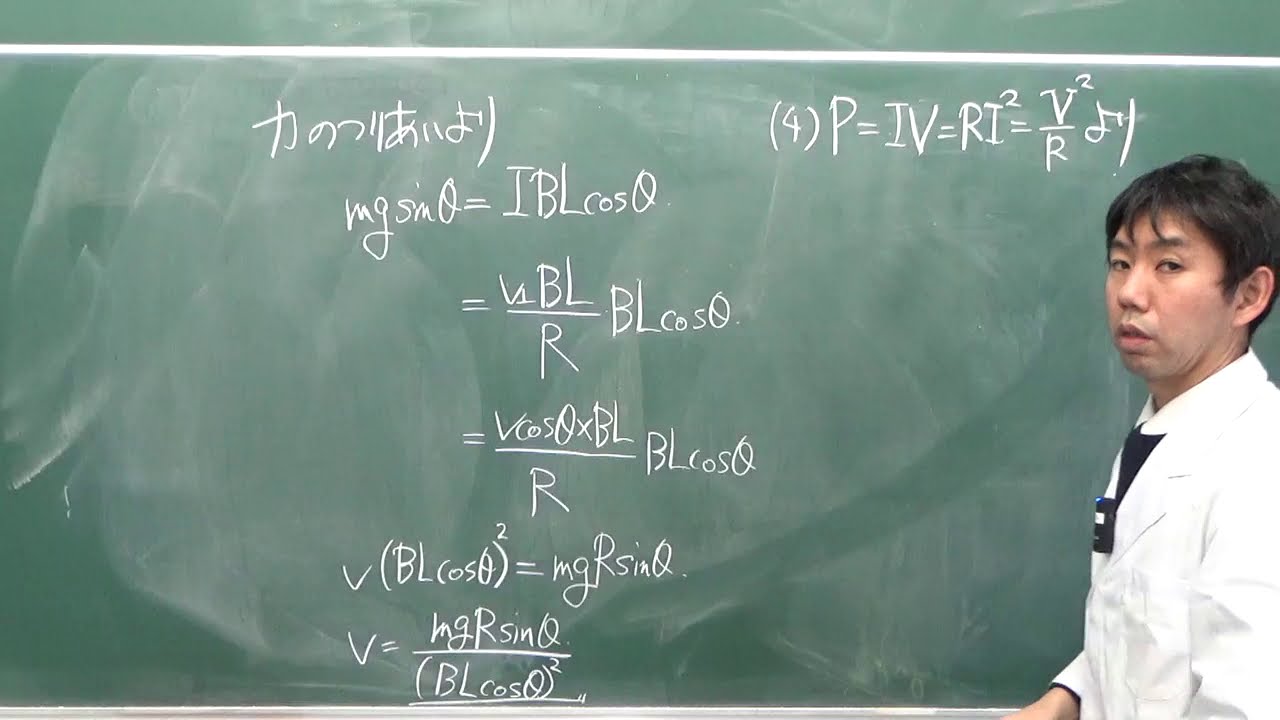 力のつりあいより
mgsinθ = IBLcosθ
= v₁BL/R ・BLcosθ
= vcosθ×BL/R BLcosθ
v(BLcosθ)² = mgRsinθ
v = mgRsinθ/(BLcosθ)²
(4) P = IV = RI² = V²/R より